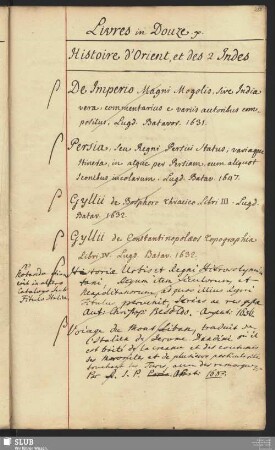 Livres in Douze.
Histoire d'Orient, et des 2 Indes
De Imperio Magni Mogolis, sive India
vera, commentarius e variis autoribus com-
positus, Lugd. Batavor. 1631.
Persia, seu Regni Persici Status, variaque
Itinera, in atque per Persiam, cum aliquot
Iconibus incolarum. Lugd. Batav.
Gyllii de Bosphoro Thracico Libri III. Lugd.
Batav. 1632.
Gyllii de Constantinopoleos Topographia
Libri IV. Lugd. Batav. 1632.
Historia Urbis et Regni Hierosolymi-
tani,
Titulus
Aut. Christoph. Besoldo. 1636
Voiage du Mont Liban, traduit de
l'Italien de Jerome Dandini, où il
est traité de la creance et des coutumes
des Maronites et de plusieurs particularités
touchant les Turcs, avec des remarques
Par R. S. P. 1685.
SLUB
Wir führen Wissen.